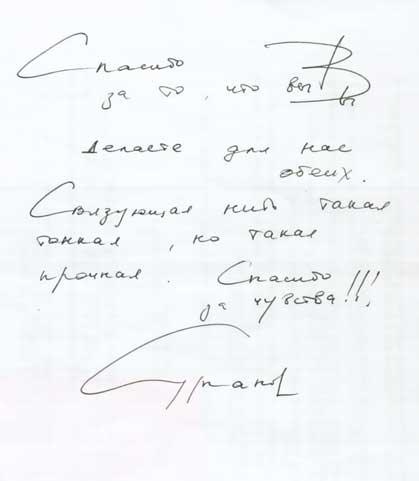 Спасибо
за то, что вы Вы
делаете для нас
обеих.
Связующая нить такая
тонкая, но такая
прочная. Спасибо
за чувства!!!